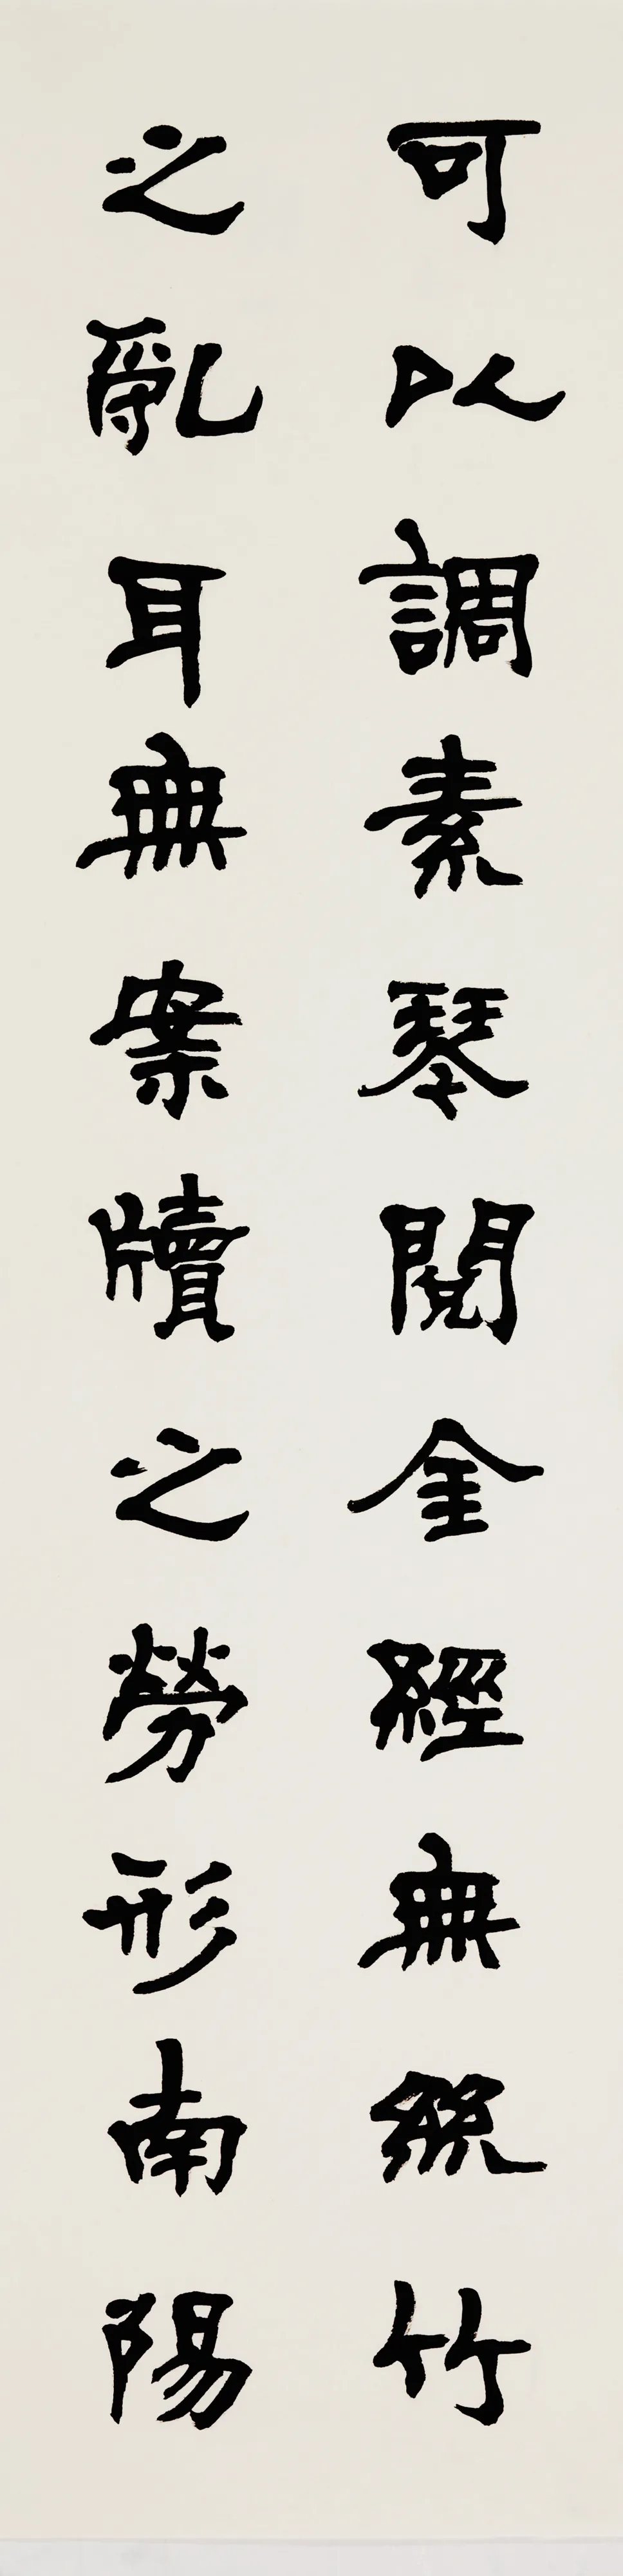 可以調素琴閱金經無絲竹
之亂耳無案牘之勞形南陽